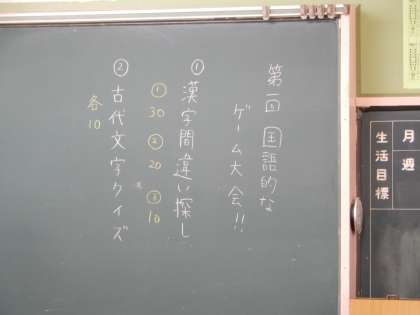 第一回国語的な
ゲーム大会!!
①漢字間違い探し
①30 ②20 ③10
②古代文字クイズ
各10
月 週
生活目標